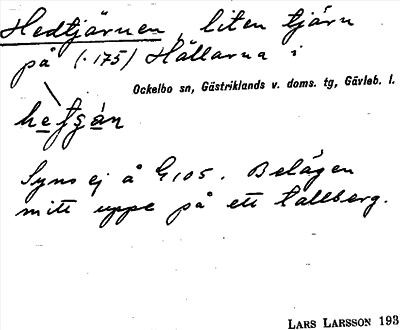 Hedtjärnen, liten tjärn
på (·175) Hällarna i
Ockelbo sn, Gästriklands v. doms. tg, Gävleb. l.
hefsán
Syns ej å G105. Belägen
mitt uppe på ett tallberg.
LARS LARSSON 193